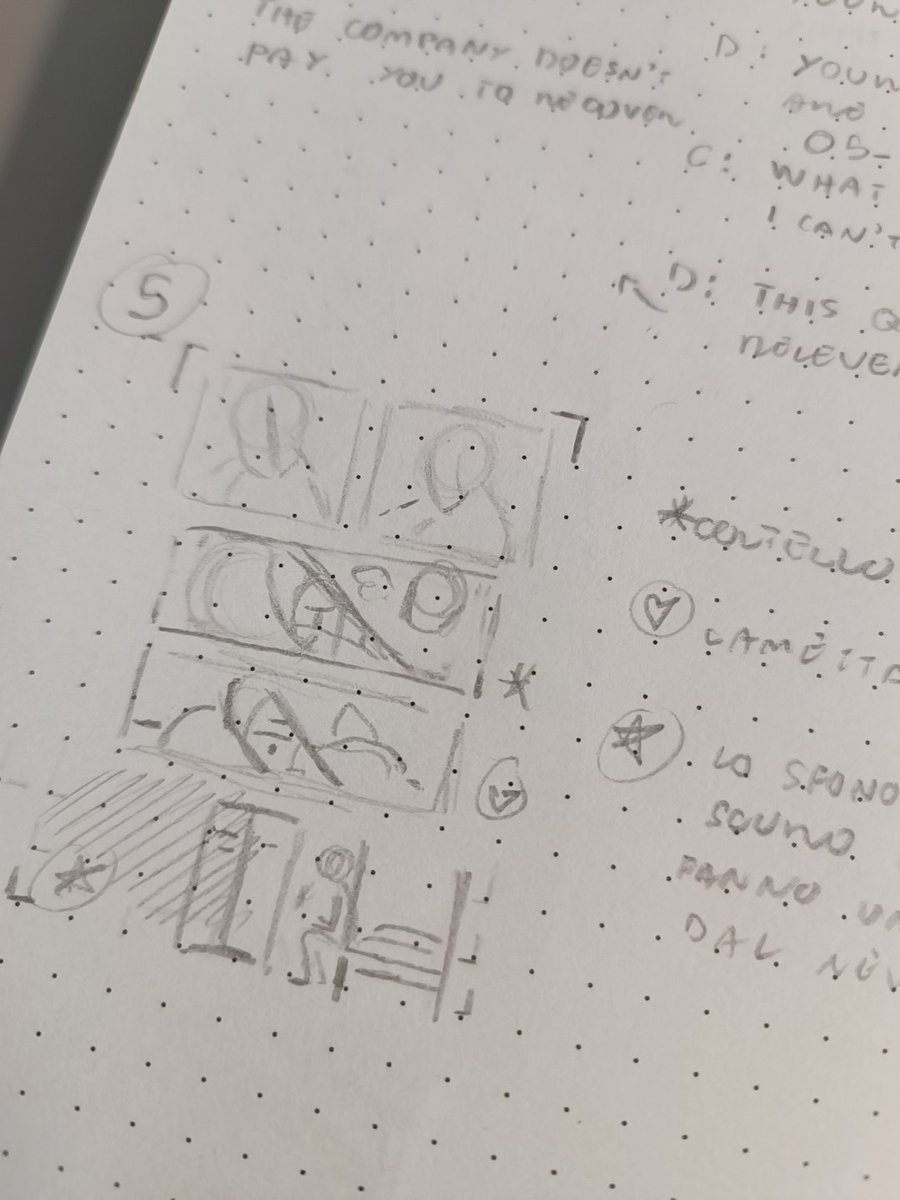 THE COMPANY DOESN'T
PAY YOU TO
D: YOUN
AND
OS-
C: WHAT
I CAN'T
D: THIS Q
RELEVEN
5
*COLTELLO
LAMETTA
LO SFONDO
SCURO
FANNO UN
DAL